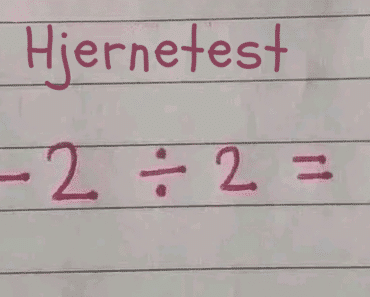 Hjernetest
- 2 ÷ 2 =